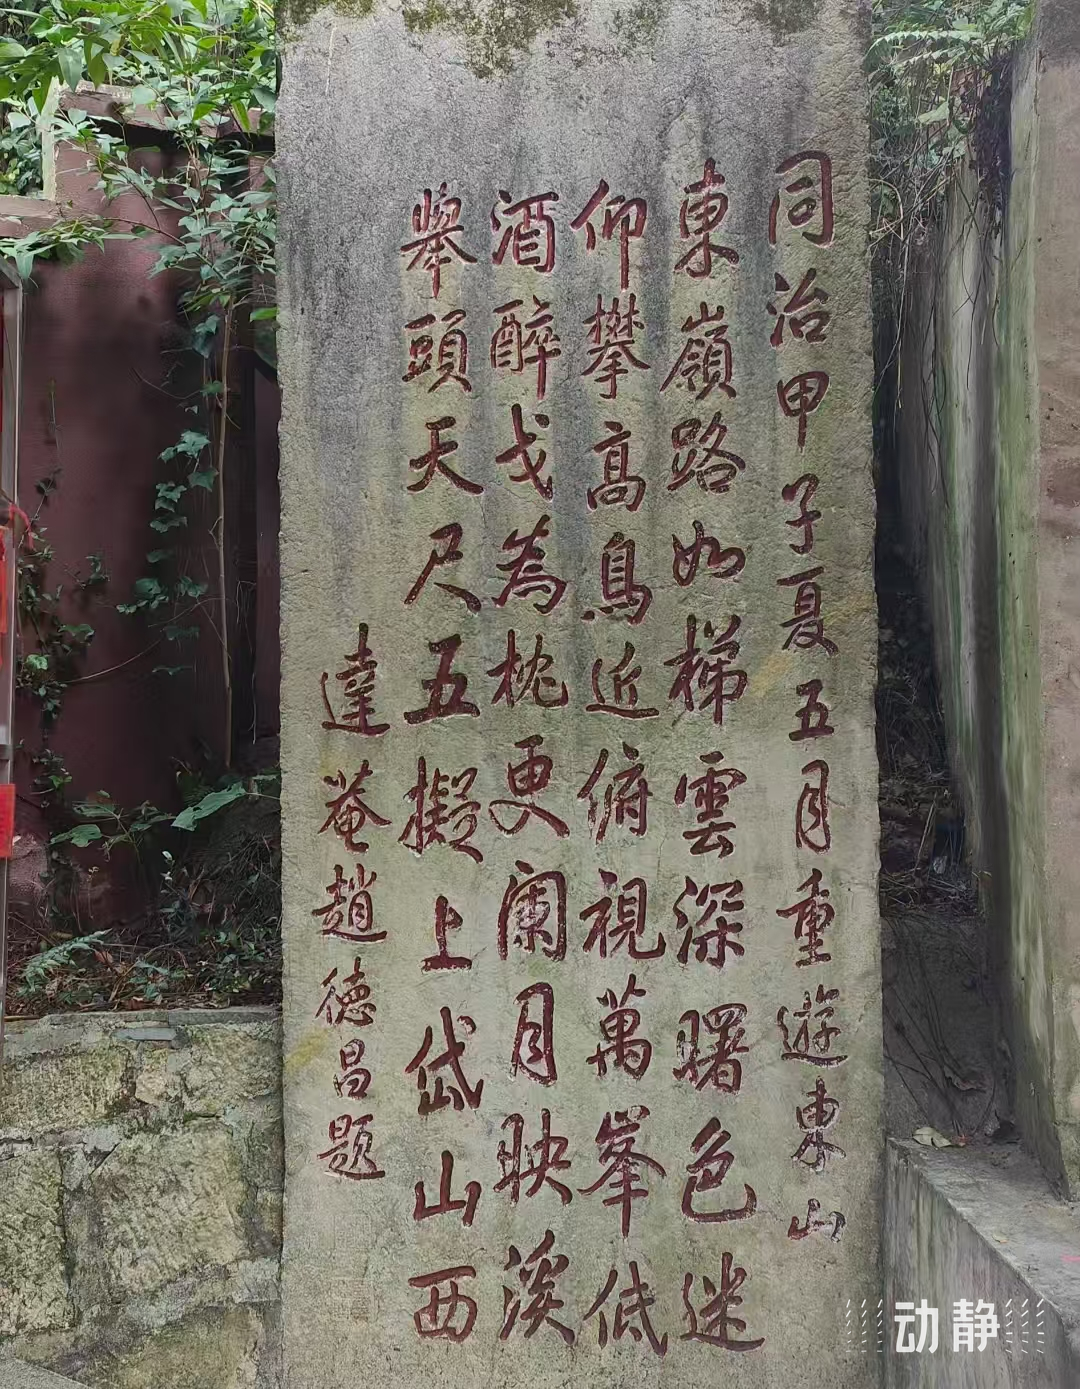 同治甲子夏五月重遊東山
東嶺路如梯雲深曙色迷
仰攀高鳥近俯視萬峯低
酒醉戈為枕更闌月映溪
舉頭天尺五擬上岱山西
達菴趙德昌題
动静